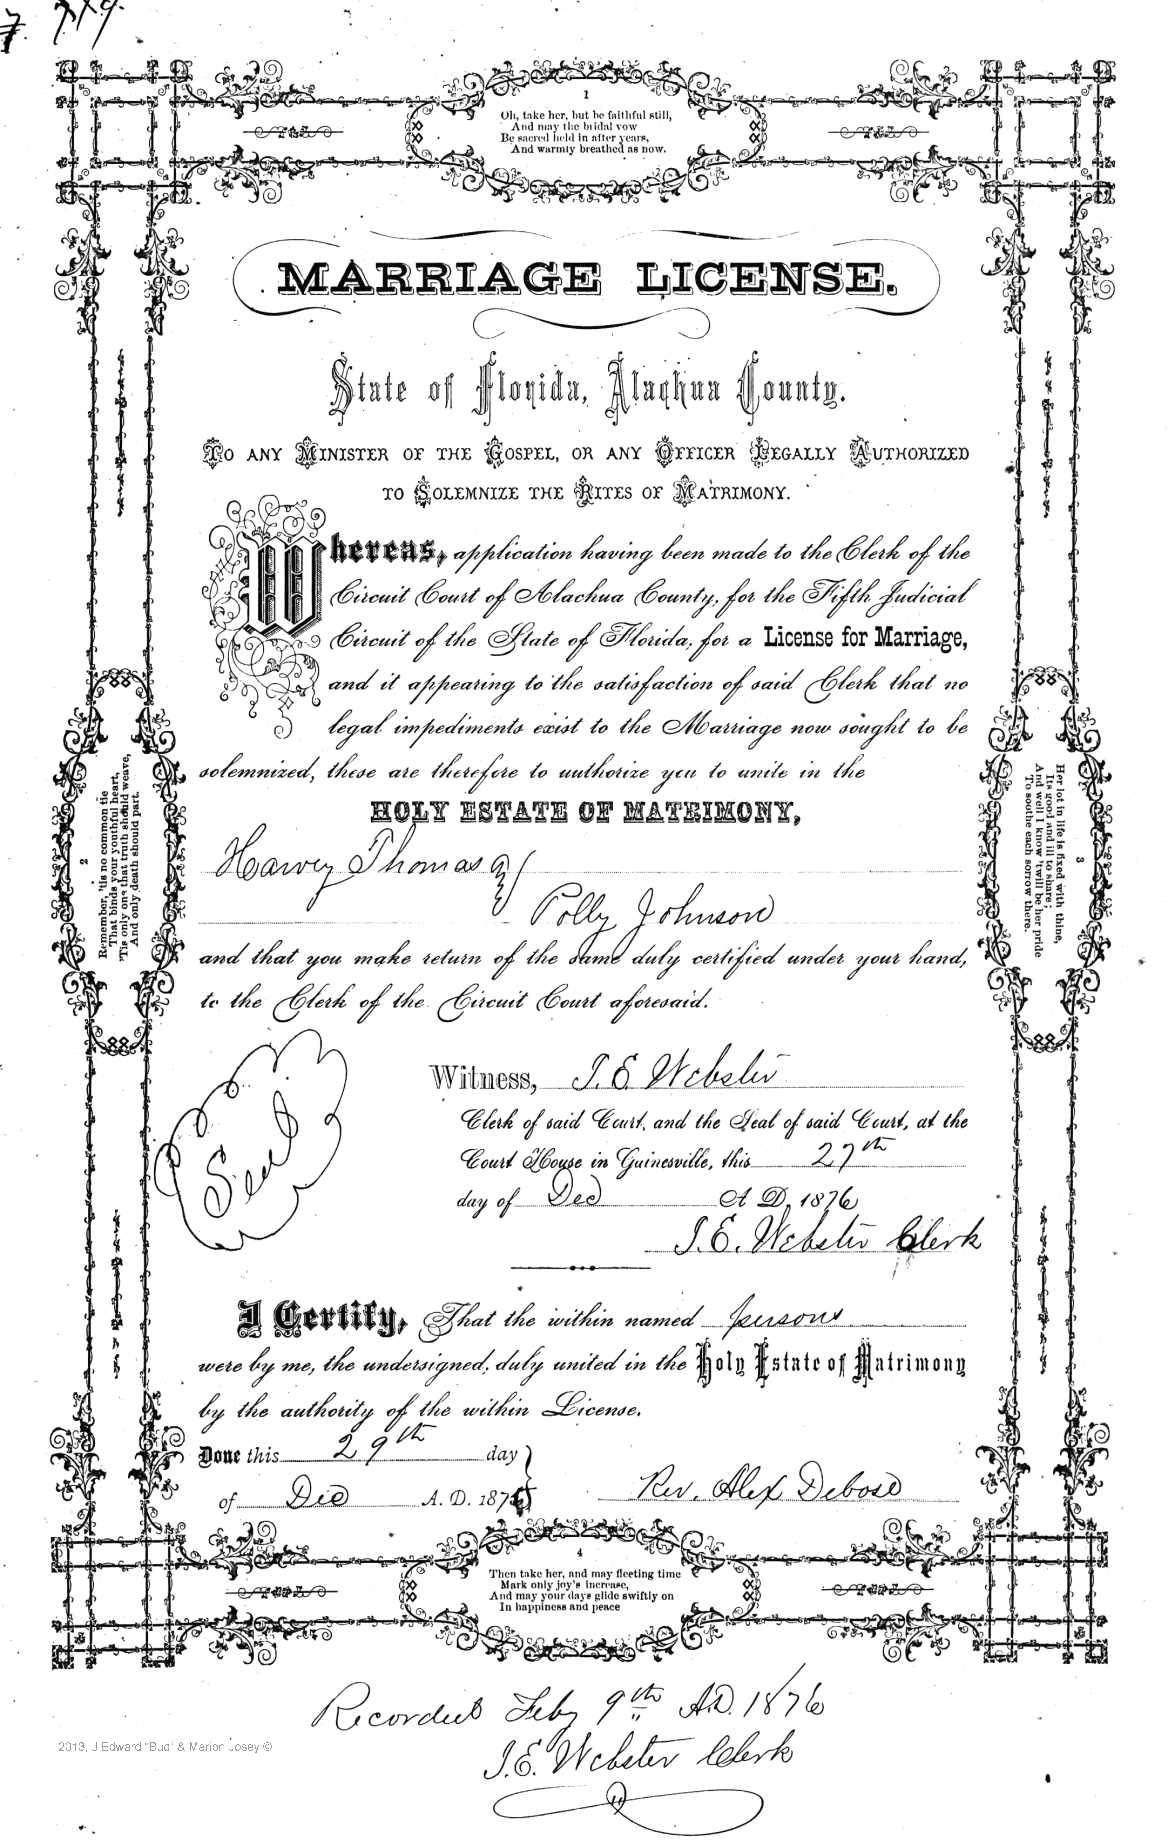 1
Oh, take her, but be faithful still,
And may the bridal vow
Be sacred held in after years,
And warmly breathed as now.
MARRIAGE LICENSE.
State of Florida, Alachua County.
TO ANY MINISTER OF THE GOSPEL, OR ANY OFFICER LEGALLY AUTHORIZED
TO SOLEMNIZE THE RITES OF MATRIMONY.
Whereas, application having been made to the Clerk of the
Circuit Court of Alachua County, for the Fifth Judicial
Circuit of the State of Florida, for a License for Marriage,
and it appearing to the satisfaction of said Clerk that no
legal impediments exist to the Marriage now sought to be
solemnized, these are therefore to authorize you to unite in the
HOLY ESTATE OF MATRIMONY,
Harvey Thomas
Polly Johnson
and that you make return of the same duly certified under your hand,
to the Clerk of the Circuit Court aforesaid.
2
Remember, 'tis no common tie
That binds your youthful heart,
'Tis only one that truth should weave,
And only death should part.
3
Her lot in life is fixed with thine,
Its good and ill to share;
And well I know 'twill be her pride
To soothe each sorrow there.
Seal
Witness, I. E. Webster
Clerk of said Court, and the Seal of said Court, at the
Court House in Gainesville, this 27th
day of Dec A D, 1876
I. E. Webster Clerk
I Certify, That the within named persons
were by me, the undersigned, duly united in the Holy Estate of Matrimony
by the authority of the within License.
Done this 29th day
of Dec A. D. 187
Rev. Alex Debose
4
Then take her, and may fleeting time
Mark only joy's increase,
And may your days glide swiftly on
In happiness and peace
Recorded Feby 9th A.D. 1876
I. E. Webster Clerk
2013, J Edward "Bud" & Marion Josey ©